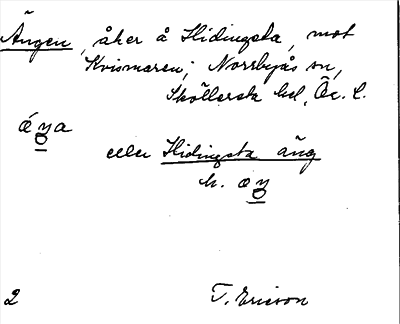 Ängen, åker å Hidingsta, mot
Kvismaren; Norrbyås sn,
Sköllersta hd, Ör. l.
eller Hidingsta äng
2 T. Ericson